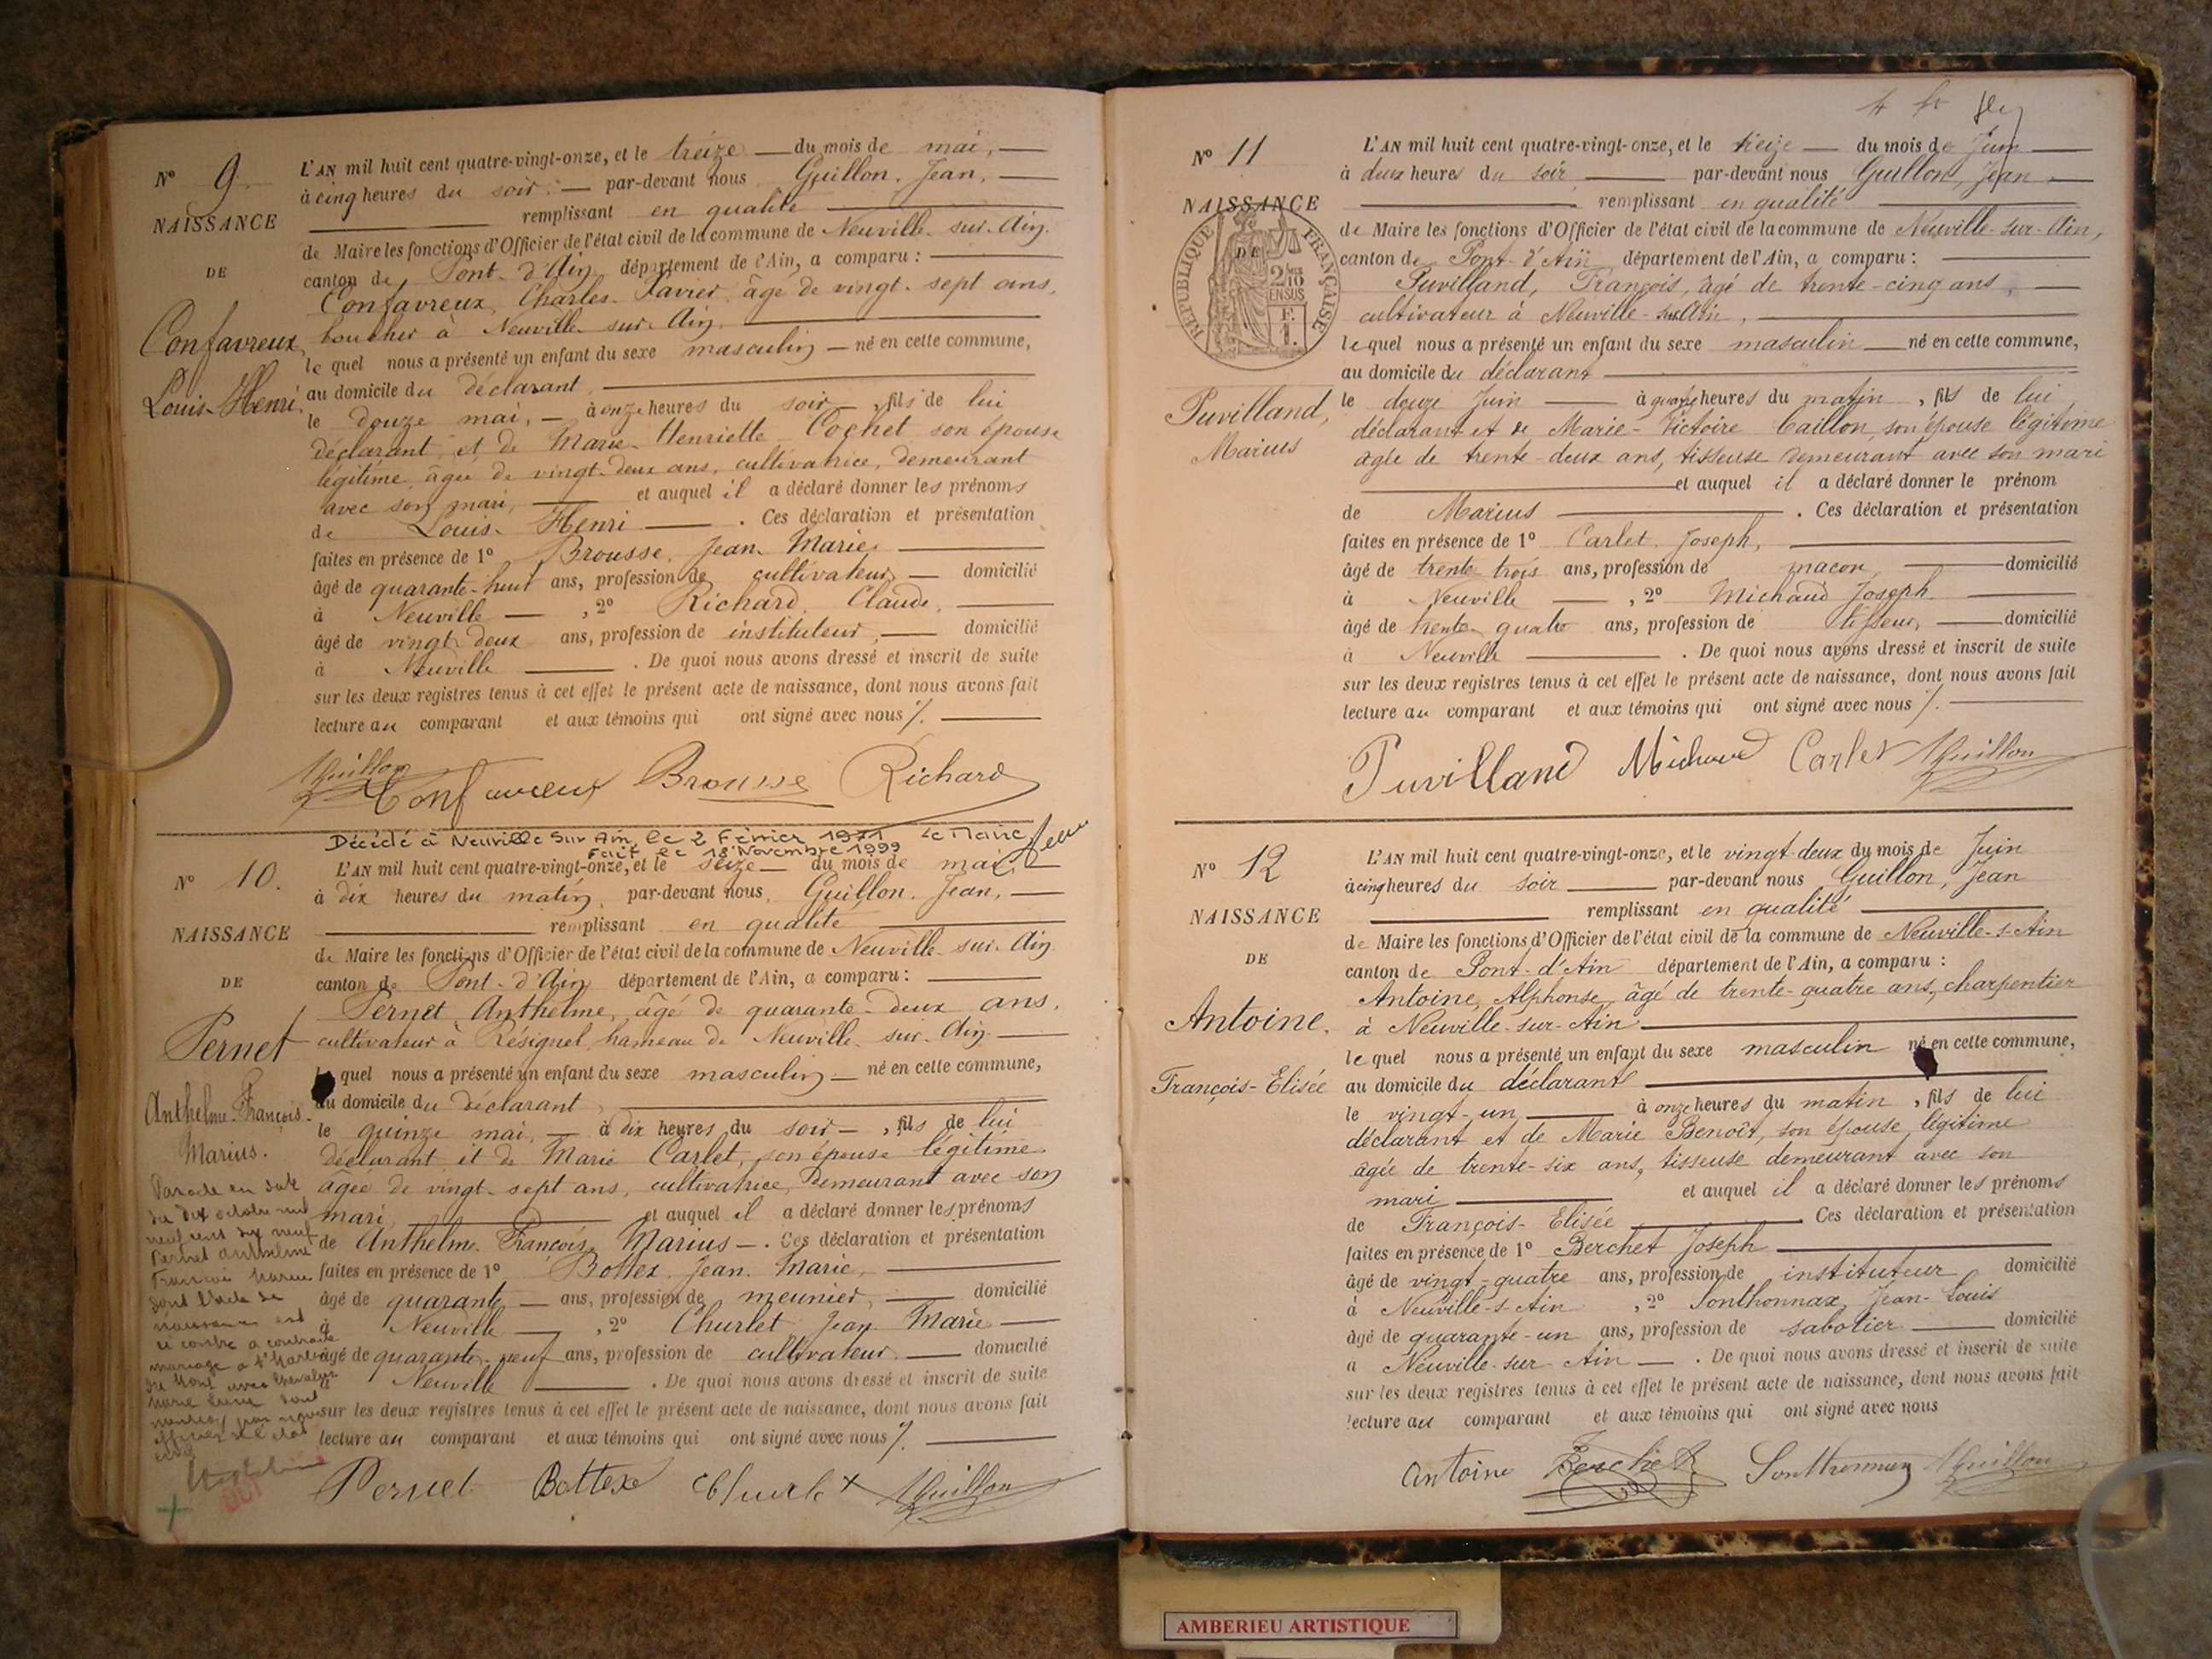 N° 9.
NAISSANCE
DE
Confavreux,
Louis-Henri.
L'AN mil huit cent quatre-vingt-onze, et le treize du mois de mai,
à cinq heures du soir, par-devant nous Guillon, Jean,
remplissant en qualité
de Maire les fonctions d'Officier de l'état civil de la commune de Neuville-sur-Ain.
canton de Pont-d'Ain département de l'Ain, a comparu :
Confavreux, Charles-Xavier, âgé de vingt-sept ans,
boucher à Neuville-sur-Ain,
le quel nous a présenté un enfant du sexe masculin né en cette commune,
au domicile du déclarant
le douze mai, à onze heures du soir, fils de lui
déclarant, et de Marie-Henriette Cochet son épouse
légitime âgée de vingt-deux ans, cultivatrice, demeurant
avec son mari, et auquel il a déclaré donner les prénoms
de Louis-Henri. Ces déclaration et présentation
faites en présence de 1° Brousse, Jean-Marie,
âgé de quarante-huit ans, profession de cultivateur, domicilié
à Neuville, 2° Richard, Claude,
âgé de vingt-deux ans, profession de instituteur, domicilié
à Neuville. De quoi nous avons dressé et inscrit de suite
sur les deux registres tenus à cet effet le présent acte de naissance, dont nous avons fait
lecture au comparant et aux témoins qui ont signé avec nous
Guillon Confavreux Brousse Richard
Décédé à Neuville Sur Ain, le 2 Février 1971 Le Maire,
Fait le 18 Novembre 1999
N° 10.
NAISSANCE
DE
Pernet
Anthelme-François-
Marius.
L'AN mil huit cent quatre-vingt-onze, et le seize du mois de mai,
à dix heures du matin, par-devant nous, Guillon, Jean,
remplissant en qualité
de Maire les fonctions d'Officier de l'état civil de la commune de Neuville-sur-Ain
canton de Pont-d'Ain département de l'Ain, a comparu :
Pernet, Anthelme, âgé de quarante-deux ans,
cultivateur à Résignel, hameau de Neuville-sur-Ain
le quel nous a présenté un enfant du sexe masculin né en cette commune,
au domicile du déclarant
le quinze mai, à dix heures du soir, fils de lui
déclarant et de Marie Carlet, son épouse légitime
âgée de vingt-sept ans, cultivatrice, demeurant avec son
mari, et auquel il a déclaré donner les prénoms
de Anthelme-François-Marius. Ces déclaration et présentation
faites en présence de 1° Bottex, Jean-Marie,
âgé de quarante ans, profession de meunier, domicilié
à Neuville, 2° Churlet Jean Marie
âgé de quarante-neuf ans, profession de cultivateur, domicilié
à Neuville. De quoi nous avons dressé et inscrit de suite
sur les deux registres tenus à cet effet le présent acte de naissance, dont nous avons fait
lecture au comparant et aux témoins qui ont signé avec nous
Par acte en date
du dix octobre mil
neuf cent dix neuf
Pernet Anthelme
François Marius
dont l'acte de
naissance est
ci contre a contracté
mariage à
avec Chevalier
Marie
officier de l'état
civil
Pernet Bottex Churlet Guillon
N° 11
NAISSANCE
DE
RÉPUBLIQUE FRANÇAISE
2/10 EN SUS
F. 1.
Puvilland,
Marius
L'AN mil huit cent quatre-vingt-onze, et le treize du mois de Juin
à deux heures du soir par-devant nous Guillon, Jean
remplissant en qualité
de Maire les fonctions d'Officier de l'état civil de la commune de Neuville-sur-Ain,
canton de Pont-d'Ain département de l'Ain, a comparu :
Puvilland, François, âgé de trente-cinq ans,
cultivateur à Neuville-sur-Ain,
le quel nous a présenté un enfant du sexe masculin né en cette commune,
au domicile du déclarant
le douze Juin à quatre heures du matin, fils de lui
déclarant et de Marie-Victoire Caillon, son épouse légitime
âgée de trente-deux ans, tisseuse demeurant avec son mari
et auquel il a déclaré donner le prénom
de Marius. Ces déclaration et présentation
faites en présence de 1° Carlet Joseph,
âgé de trente trois ans, profession de maçon, domicilié
à Neuville, 2° Michaud Joseph
âgé de trente-quatre ans, profession de tisseur, domicilié
à Neuville. De quoi nous avons dressé et inscrit de suite
sur les deux registres tenus à cet effet le présent acte de naissance, dont nous avons fait
lecture au comparant et aux témoins qui ont signé avec nous
Puvilland Michaud Carlet Guillon
N° 12
NAISSANCE
DE
Antoine.
François-Elisée
L'AN mil huit cent quatre-vingt-onze, et le vingt-deux du mois de Juin
à cinq heures du soir par-devant nous Guillon, Jean
remplissant en qualité
de Maire les fonctions d'Officier de l'état civil de la commune de Neuville-s-Ain
canton de Pont-d'Ain département de l'Ain, a comparu :
Antoine, Alphonse, âgé de trente-quatre ans, charpentier
à Neuville-sur-Ain
le quel nous a présenté un enfant du sexe masculin né en cette commune,
au domicile du déclarant
le vingt-un à onze heures du matin, fils de lui
déclarant et de Marie Benoît, son épouse légitime
âgée de trente-six ans, tisseuse demeurant avec son
mari et auquel il a déclaré donner les prénoms
de François-Elisée Ces déclaration et présentation
faites en présence de 1° Berchet Joseph
âgé de vingt-quatre ans, profession de instituteur domicilié
à Neuville-s-Ain, 2° Sonthonnax, Jean-Louis
âgé de quarante-un ans, profession de sabotier domicilié
à Neuville-sur-Ain. De quoi nous avons dressé et inscrit de suite
sur les deux registres tenus à cet effet le présent acte de naissance, dont nous avons fait
lecture au comparant et aux témoins qui ont signé avec nous
Antoine Berchet Sonthonnax Guillon
AMBERIEU ARTISTIQUE